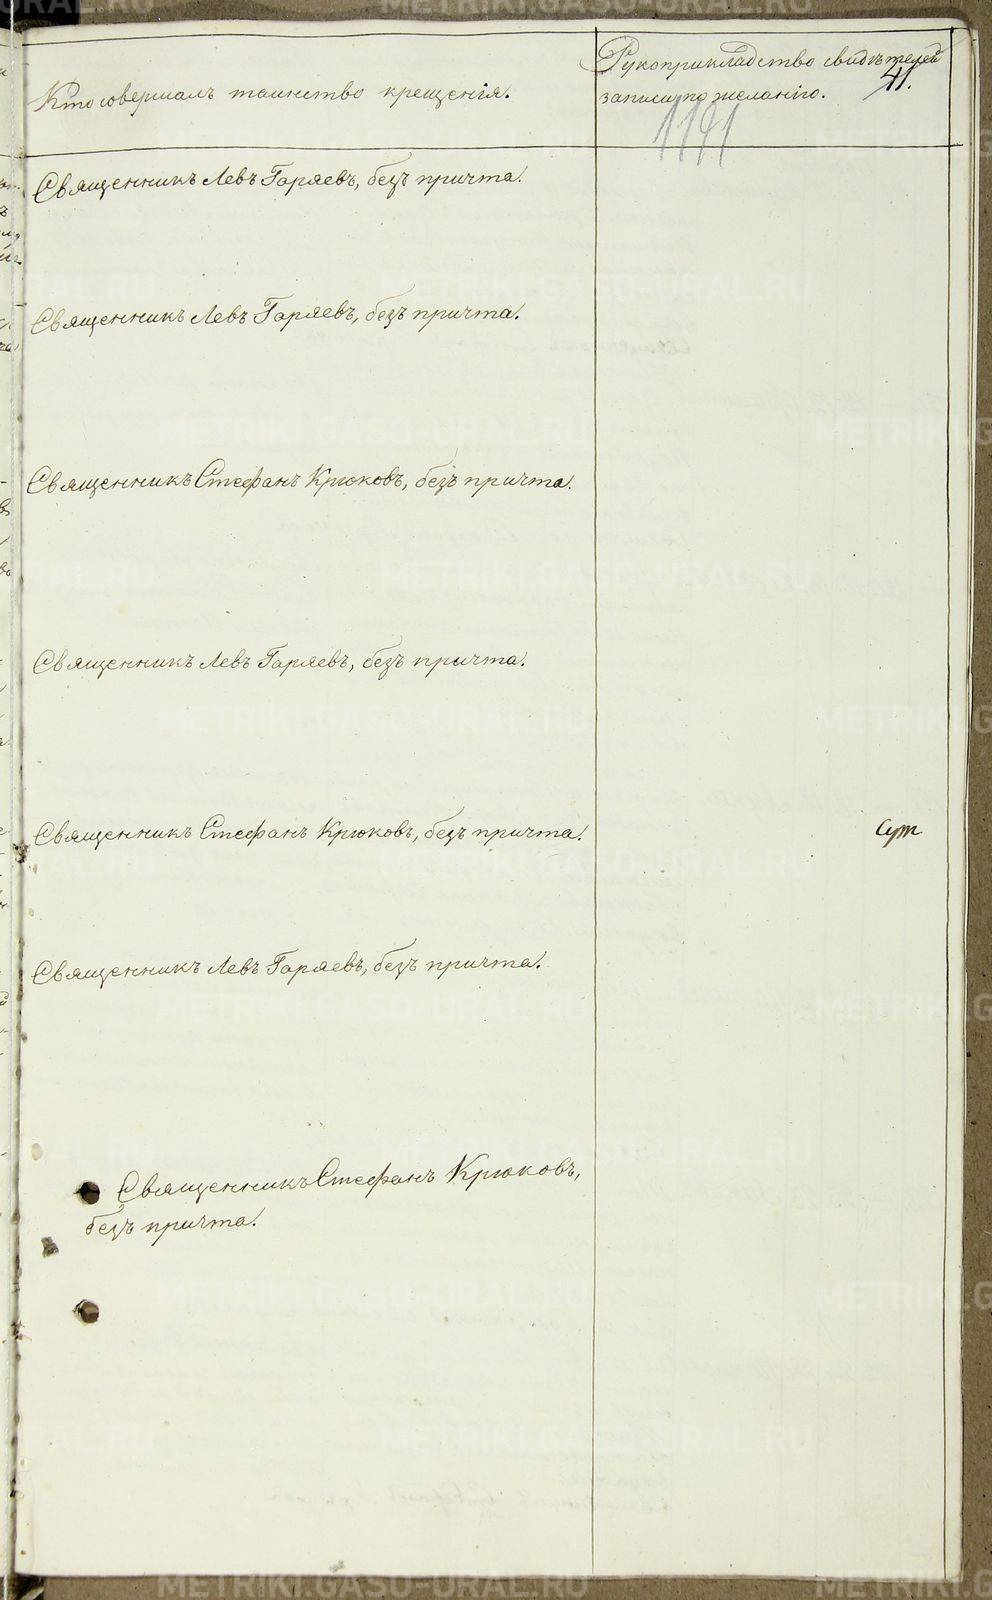 Кто совершалъ таинство крещенія.
Рукоприкладство свидѣтелей
записи по желанію.
41.
1191
Священникъ Левъ Гаряевъ, безъ причта.
Священникъ Левъ Гаряевъ, безъ причта.
Священникъ Стефанъ Крюковъ, безъ причта.
Священникъ Левъ Гаряевъ, безъ причта.
Священникъ Стефанъ Крюковъ, безъ причта.
Священникъ Левъ Гаряевъ, безъ причта.
Священникъ Стефанъ Крюковъ,
безъ причта.
METRIKI.GASO-URAL.RU